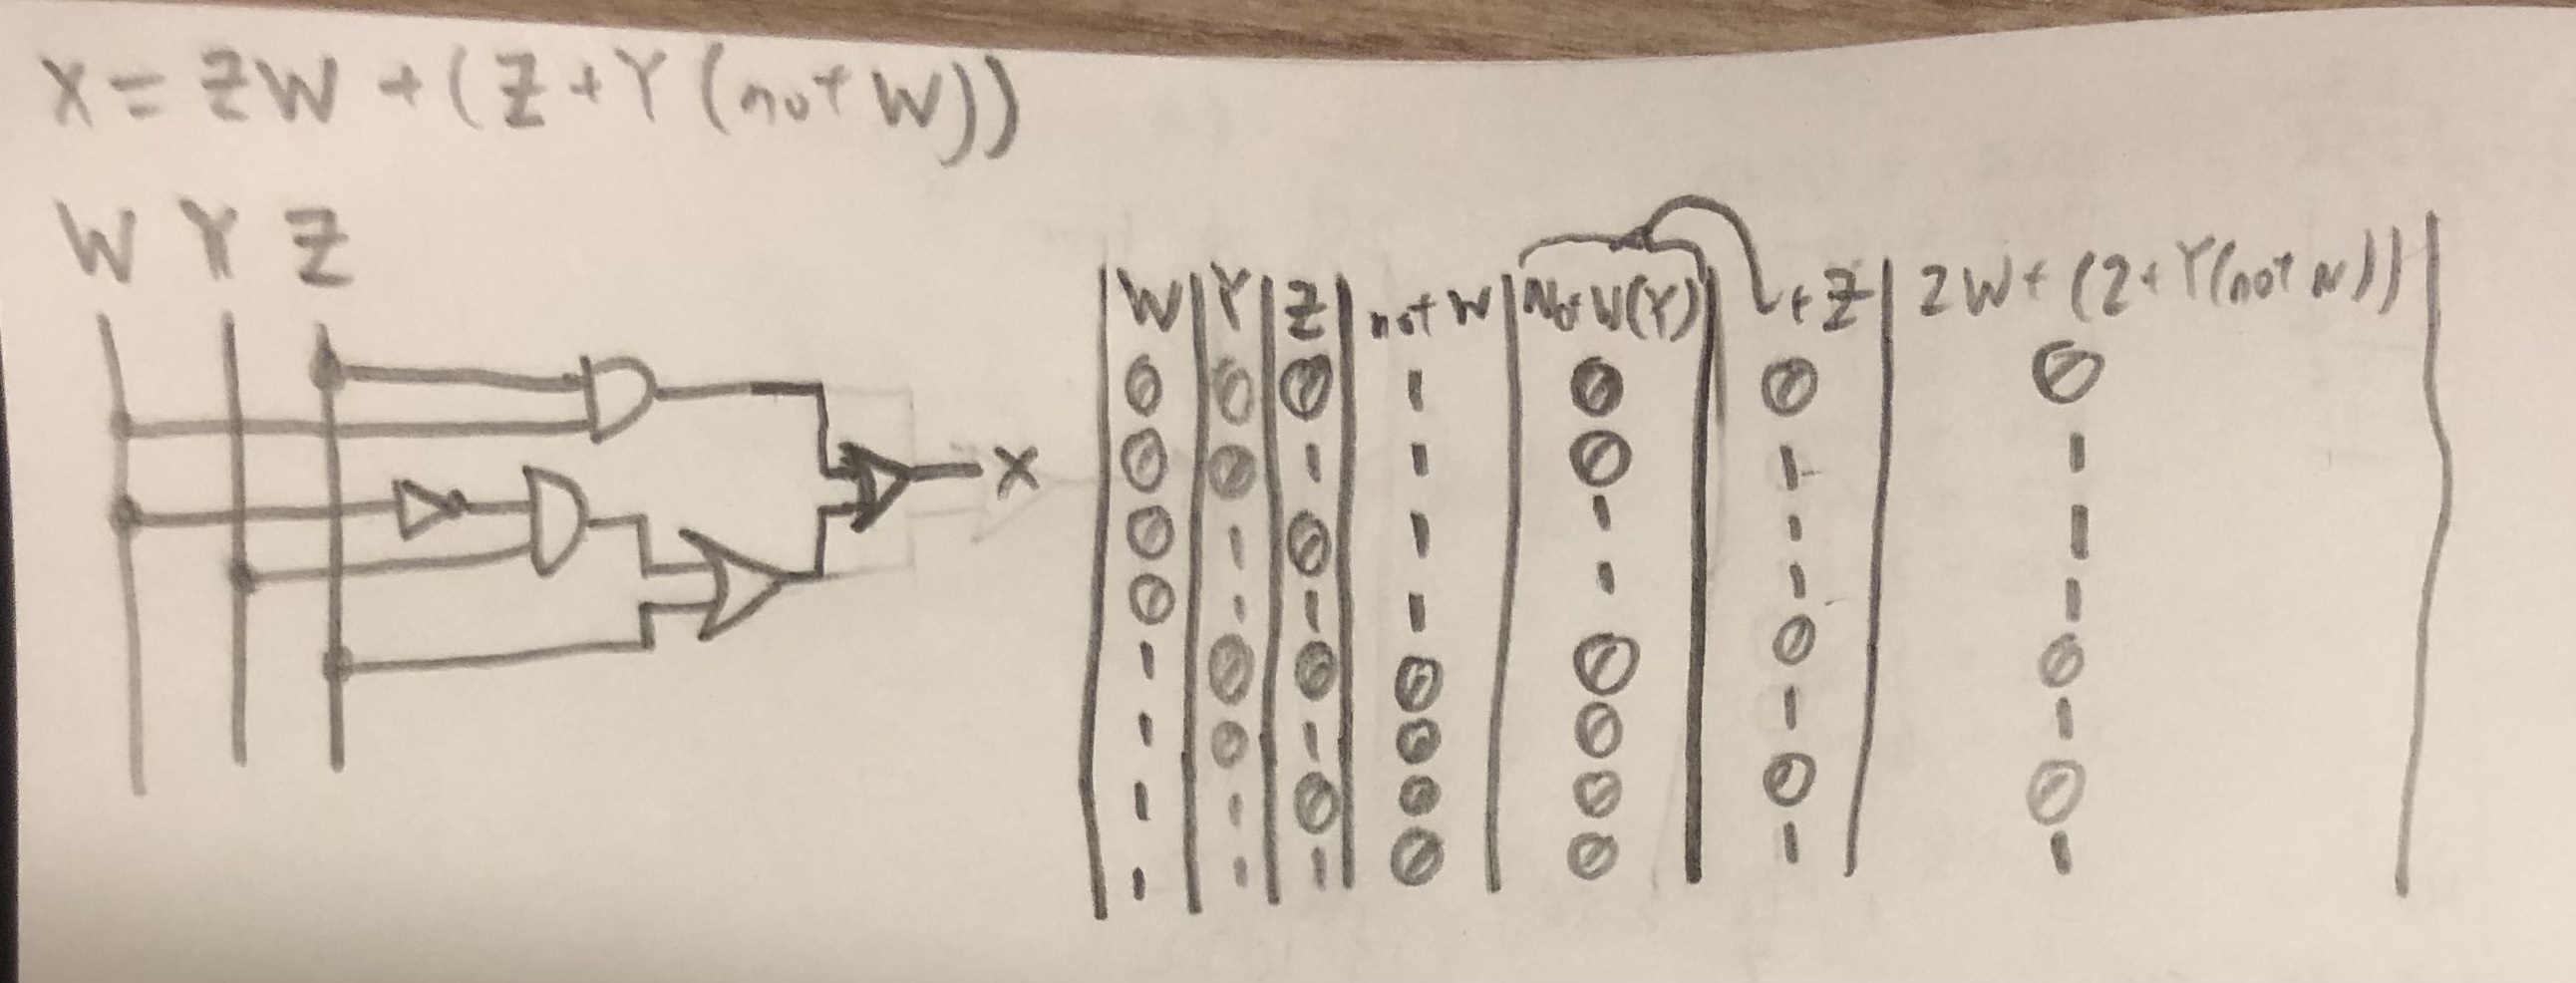 X = ZW + (Z + Y (not W))
W Y Z
X
W Y Z not W Not W(Y) + Z ZW + (Z + Y(not W))
0 0 0 1 0 0 0
0 0 1 1 0 1 1
0 1 0 1 1 1 1
0 1 1 1 1 1 1
1 0 0 0 0 0 0
1 0 1 0 0 1 1
1 1 0 0 0 0 0
1 1 1 0 0 1 1